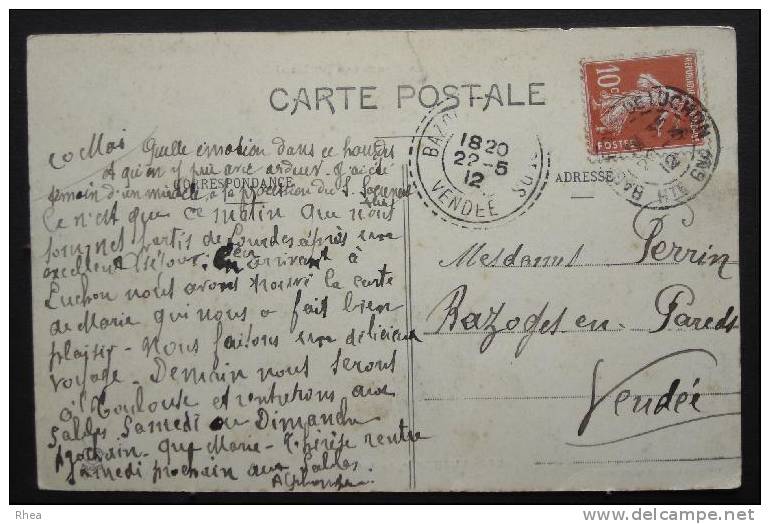 CARTE POSTALE
CORRESPONDANCE
ADRESSE
10c
POSTES
18 20
22-5
12
VENDÉE
DE LUCHON
20 Mai Quelle émotion dans ce
et qu'on y prie avec ardeur - J'ai été
témoin d'un miracle, à la procession du S. Sacrement
Ce n'est que ce matin que nous
sommes partis de Lourdes après un
excellent séjour. En arrivant à
Luchon nous avons trouvé la carte
de Marie qui nous a fait bien
plaisir - Nous faisons un délicieux
voyage - Demain nous serons
à Toulouse et rentrerons aux
Sables Samedi ou Dimanche
prochain - que Marie-Thérèse rentre
Samedi prochain aux Sables.
Mesdames Perrin
Bazoges en Pareds
Vendée
Rhea
delcampe.net